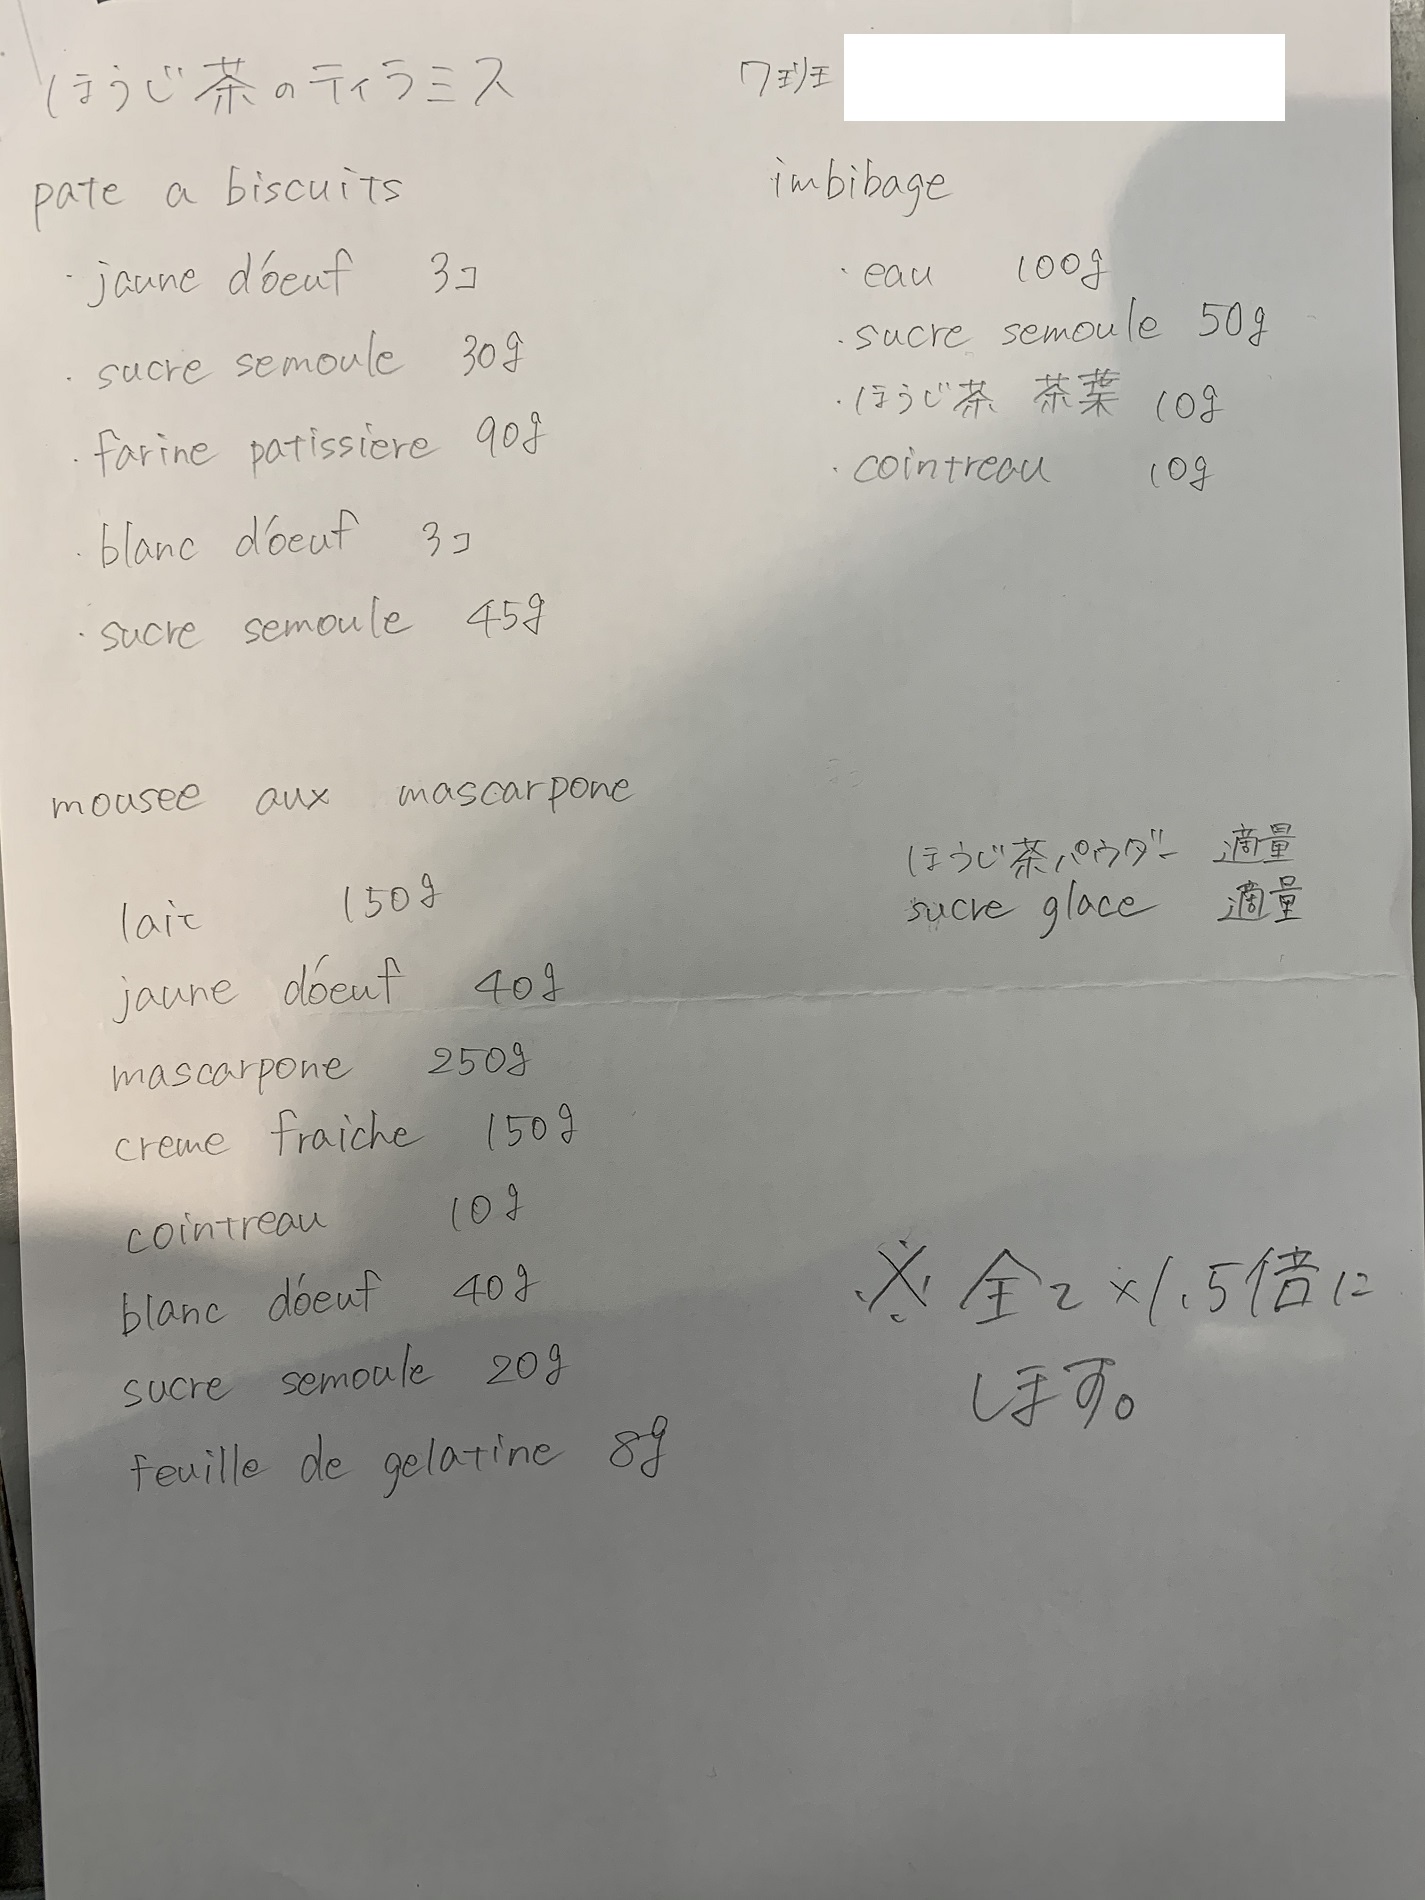 ほうじ茶のティラミス
7班
pate a biscuits
・jaune d'oeuf 3コ
・sucre semoule 30g
・farine patissiere 90g
・blanc d'oeuf 3コ
・sucre semoule 45g
imbibage
・eau 100g
・sucre semoule 50g
・ほうじ茶 茶葉 10g
・cointreau 10g
mousee aux mascarpone
lait 150g
jaune d'oeuf 40g
mascarpone 250g
creme fraiche 150g
cointreau 10g
blanc d'oeuf 40g
sucre semoule 20g
feuille de gelatine 8g
ほうじ茶パウダー 適量
sucre glace 適量
※全て×1.5倍に
します。